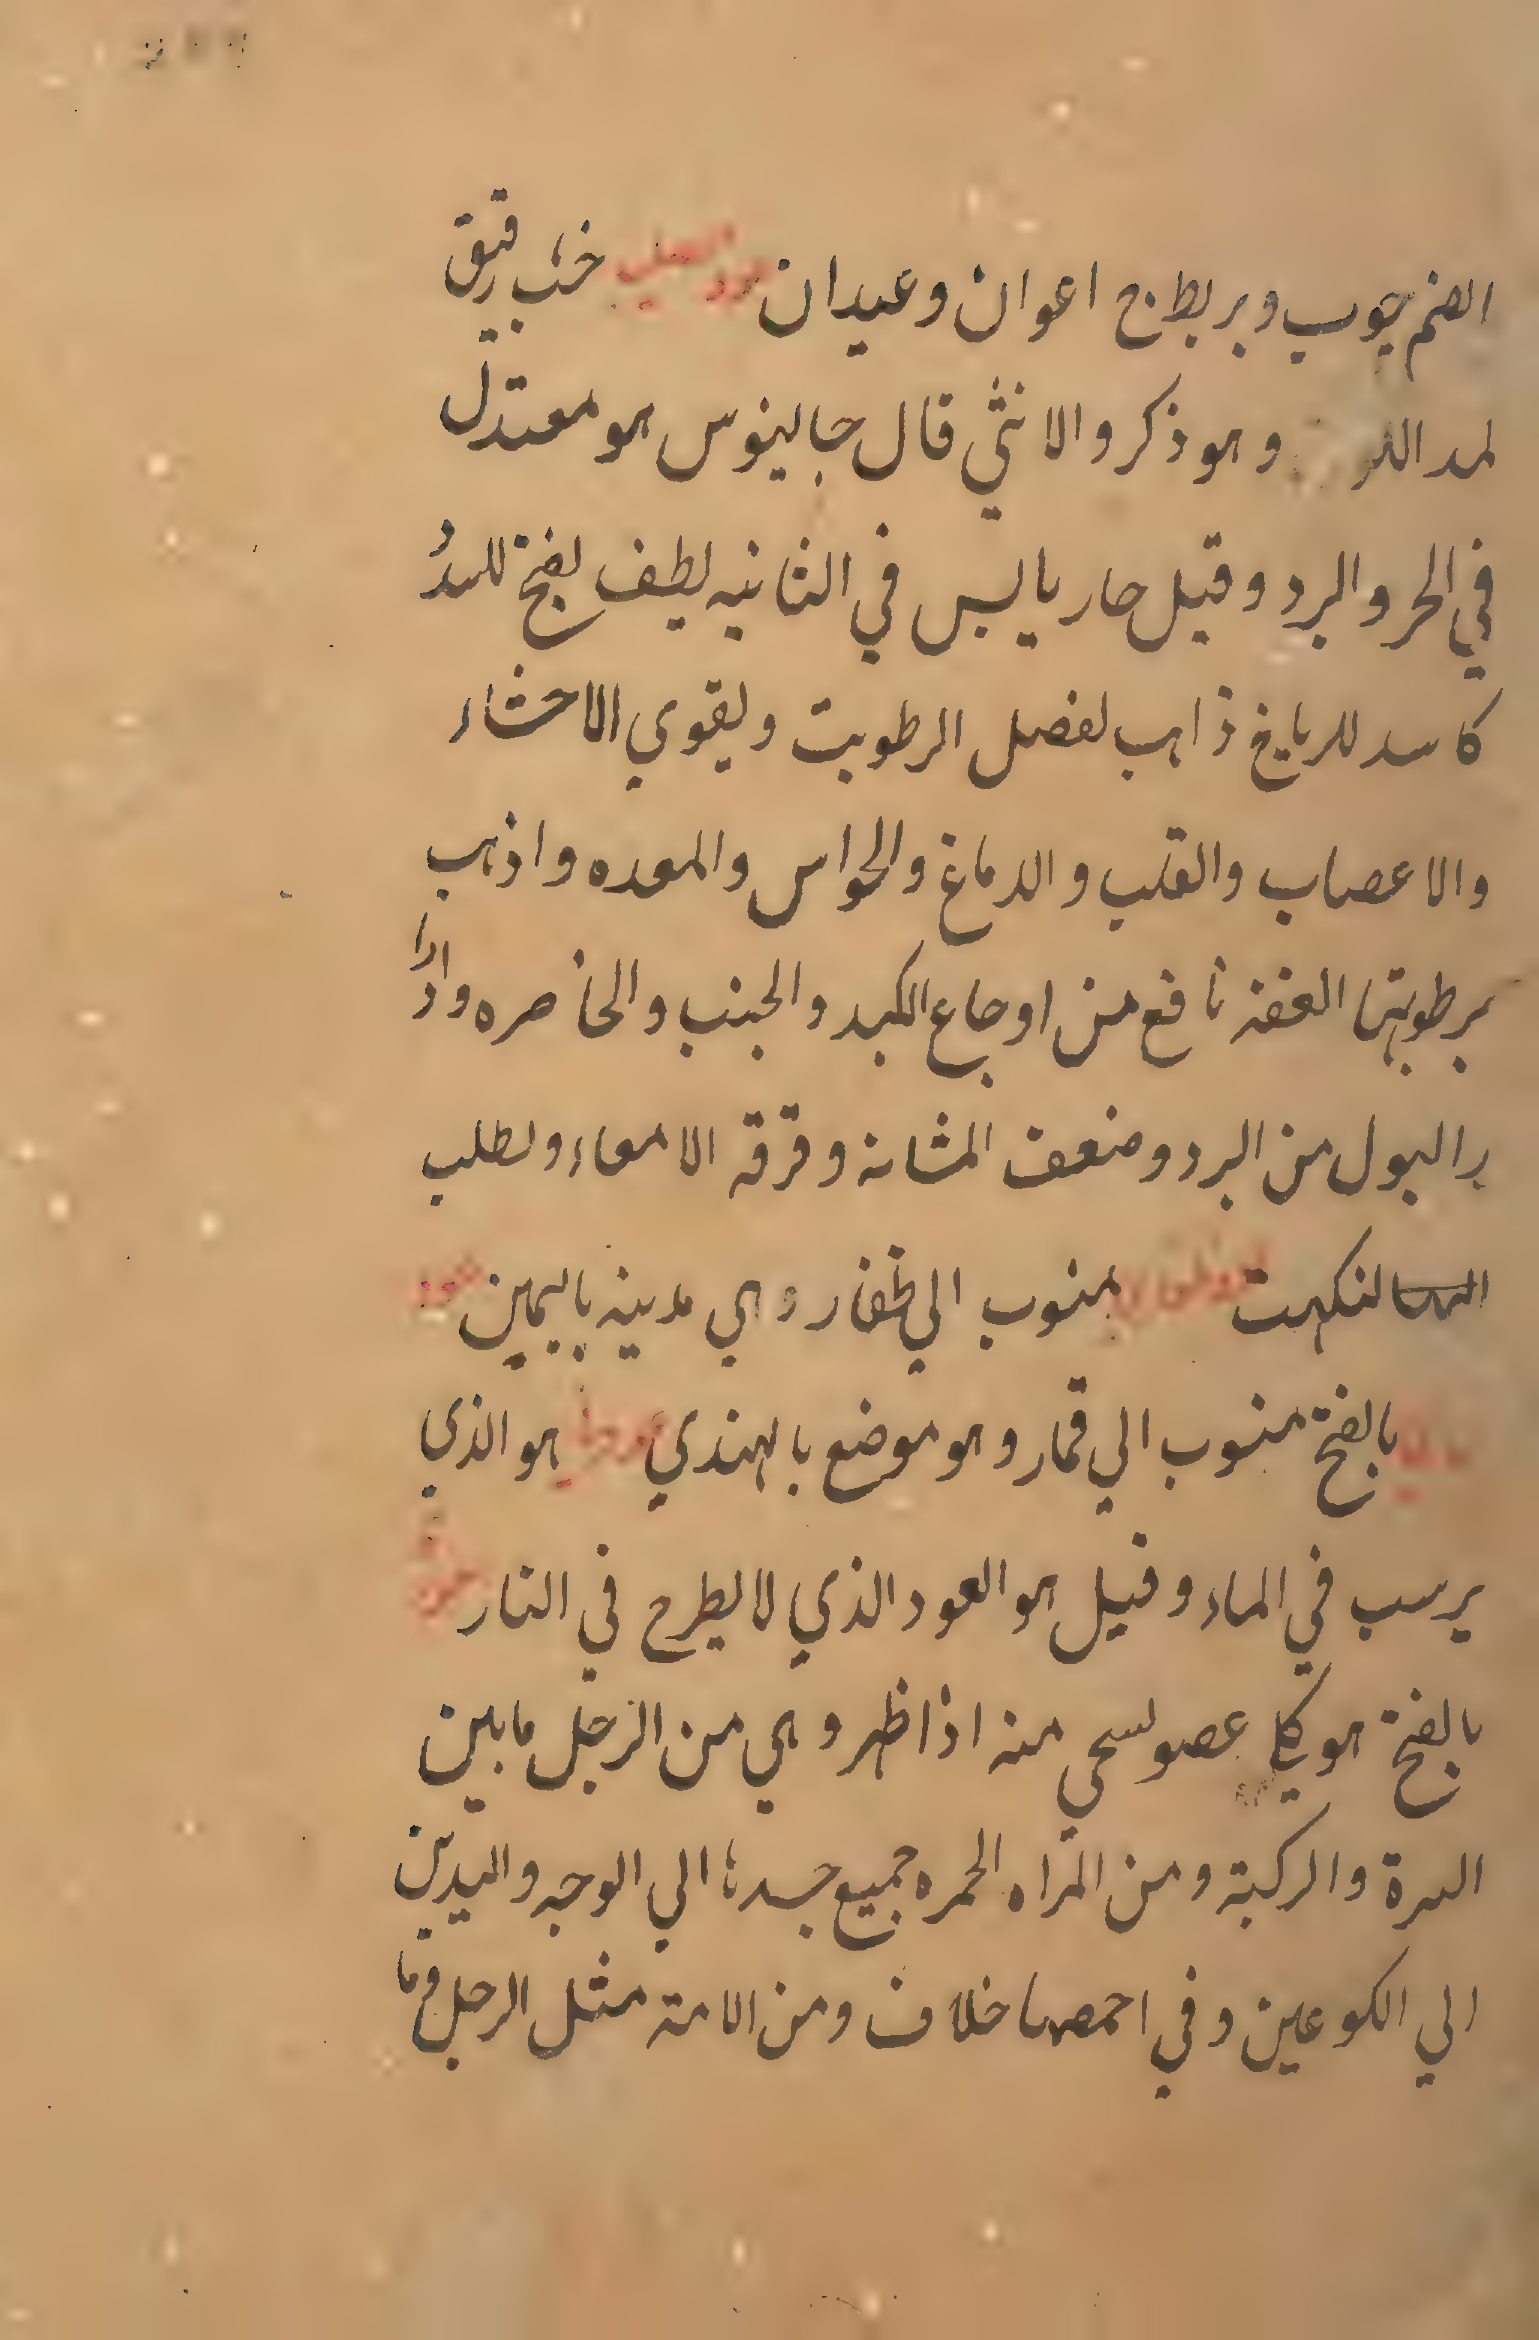 الضم چوب و بربط ج اعوان و عيدان عود صليب خشب رقيق
وهو ذكر والانثي قال جالينوس هو معتدل
في الحر والبرد وقيل حار يابس في الثانيه لطيف يفتح للسدد
كاسد للرياح ذاهب لفضل الرطوبت ويقوي الاحشاء
والاعصاب والقلب والدماغ والحواس والمعده واذهب
برطوبتها العفنه نافع من اوجاع الكبد والجنب والخاصره وادرا
را البول من البرد وضعف المثانه وقرقه الامعاء ولطلب
النكهت منسوب الي ظفار وهي مدينه باليمن عود
بالفتح منسوب الي قمار وهو موضع بالهندي هو الذي
يرسب في الماء وقيل هو العود الذي لا يطرح في النار
بالفتح هو كل عضو يسحي منه اذا ظهر وهي من الرجل ما بين
السرة والركبة ومن المراه الحمره جميع جسدها الي الوجه واليدين
الي الكوعين وفي احمصها خلاف ومن الامة مثل الرجل وما